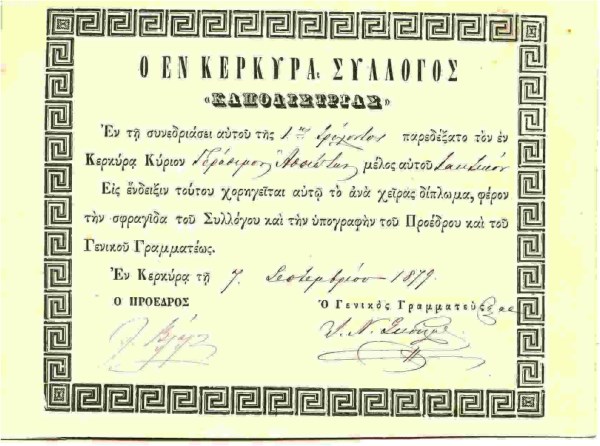 Ο ΕΝ ΚΕΡΚΥΡΑι ΣΥΛΛΟΓΟΣ
«ΚΑΠΟΔΙΣΤΡΙΑΣ»
Ἐν τῇ συνεδριάσει αὐτοῦ τῆς 1ης τρέχοντος παρεδέξατο τὸν ἐν
Κερκύρᾳ Κύριον Γεράσιμον μέλος αὐτοῦ Τακτικόν
Εἰς ἔνδειξιν τούτου χορηγεῖται αὐτῷ τὸ ἀνὰ χεῖρας δίπλωμα, φέρον
τὴν σφραγῖδα τοῦ Συλλόγου καὶ τὴν ὑπογραφὴν τοῦ Προέδρου καὶ τοῦ
Γενικοῦ Γραμματέως.
Ἐν Κερκύρᾳ τῇ 7 Σεπτεμβρίου 1879
Ο ΠΡΟΕΔΡΟΣ
Ὁ Γενικὸς Γραμματεὺς